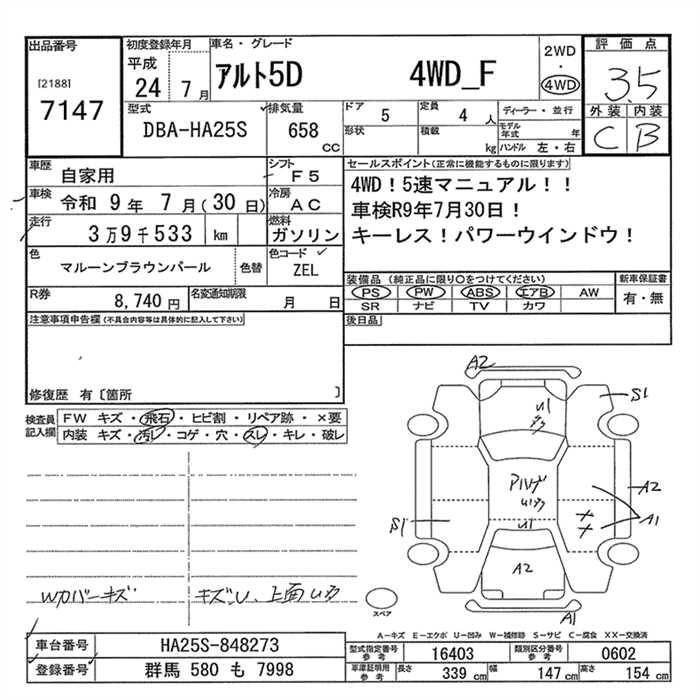 出品番号
[2188]
7147
初度登録年月
平成
24 7月
車名・グレード
アルト5D 4WD_F
2WD
・
4WD
評価点
3.5
外装 内装
C B
型式
DBA-HA25S
排気量
658 CC
ドア 5
定員 4 人
形状
積載 kg
ディーラー・並行
モデル年式 年
ハンドル 左・右
車歴 自家用
シフト F5
車検 令和 9年 7月(30日)
冷房 AC
走行 3万9千533 km
燃料 ガソリン
色 マルーンブラウンパール 色替
色コード ZEL
R券 8,740円
名変通知期限 月 日
セールスポイント(正常に機能するものに限ります)
4WD!5速マニュアル!!
車検R9年7月30日!
キーレス!パワーウインドウ!
装備品 (純正品に限り○をつけてください)
PS PW ABS エアB AW
SR ナビ TV カワ
新車保証書
有・無
後日品
注意事項申告欄(不具合内容等は具体的に記入して下さい)
修復歴 有〔箇所 〕
検査員記入欄
FW キズ・飛石・ヒビ割・リペア跡・×要
内装 キズ・汚レ・コゲ・穴・スレ・キレ・破レ
A2
S1
U1
A2
A1
S1
U1
A2
A1
スペア
Wカバーキズ
キズ、U、上面U3
A-キズ E-エクボ U-凹み W-補修跡 S-サビ C-腐食 XX-交換済
車台番号 HA25S-848273
登録番号 群馬 580 も 7998
型式指定番号 参考 16403
類別区分番号 参考 0602
車庫証明用 参考
長さ 339 cm
幅 147 cm
高さ 154 cm